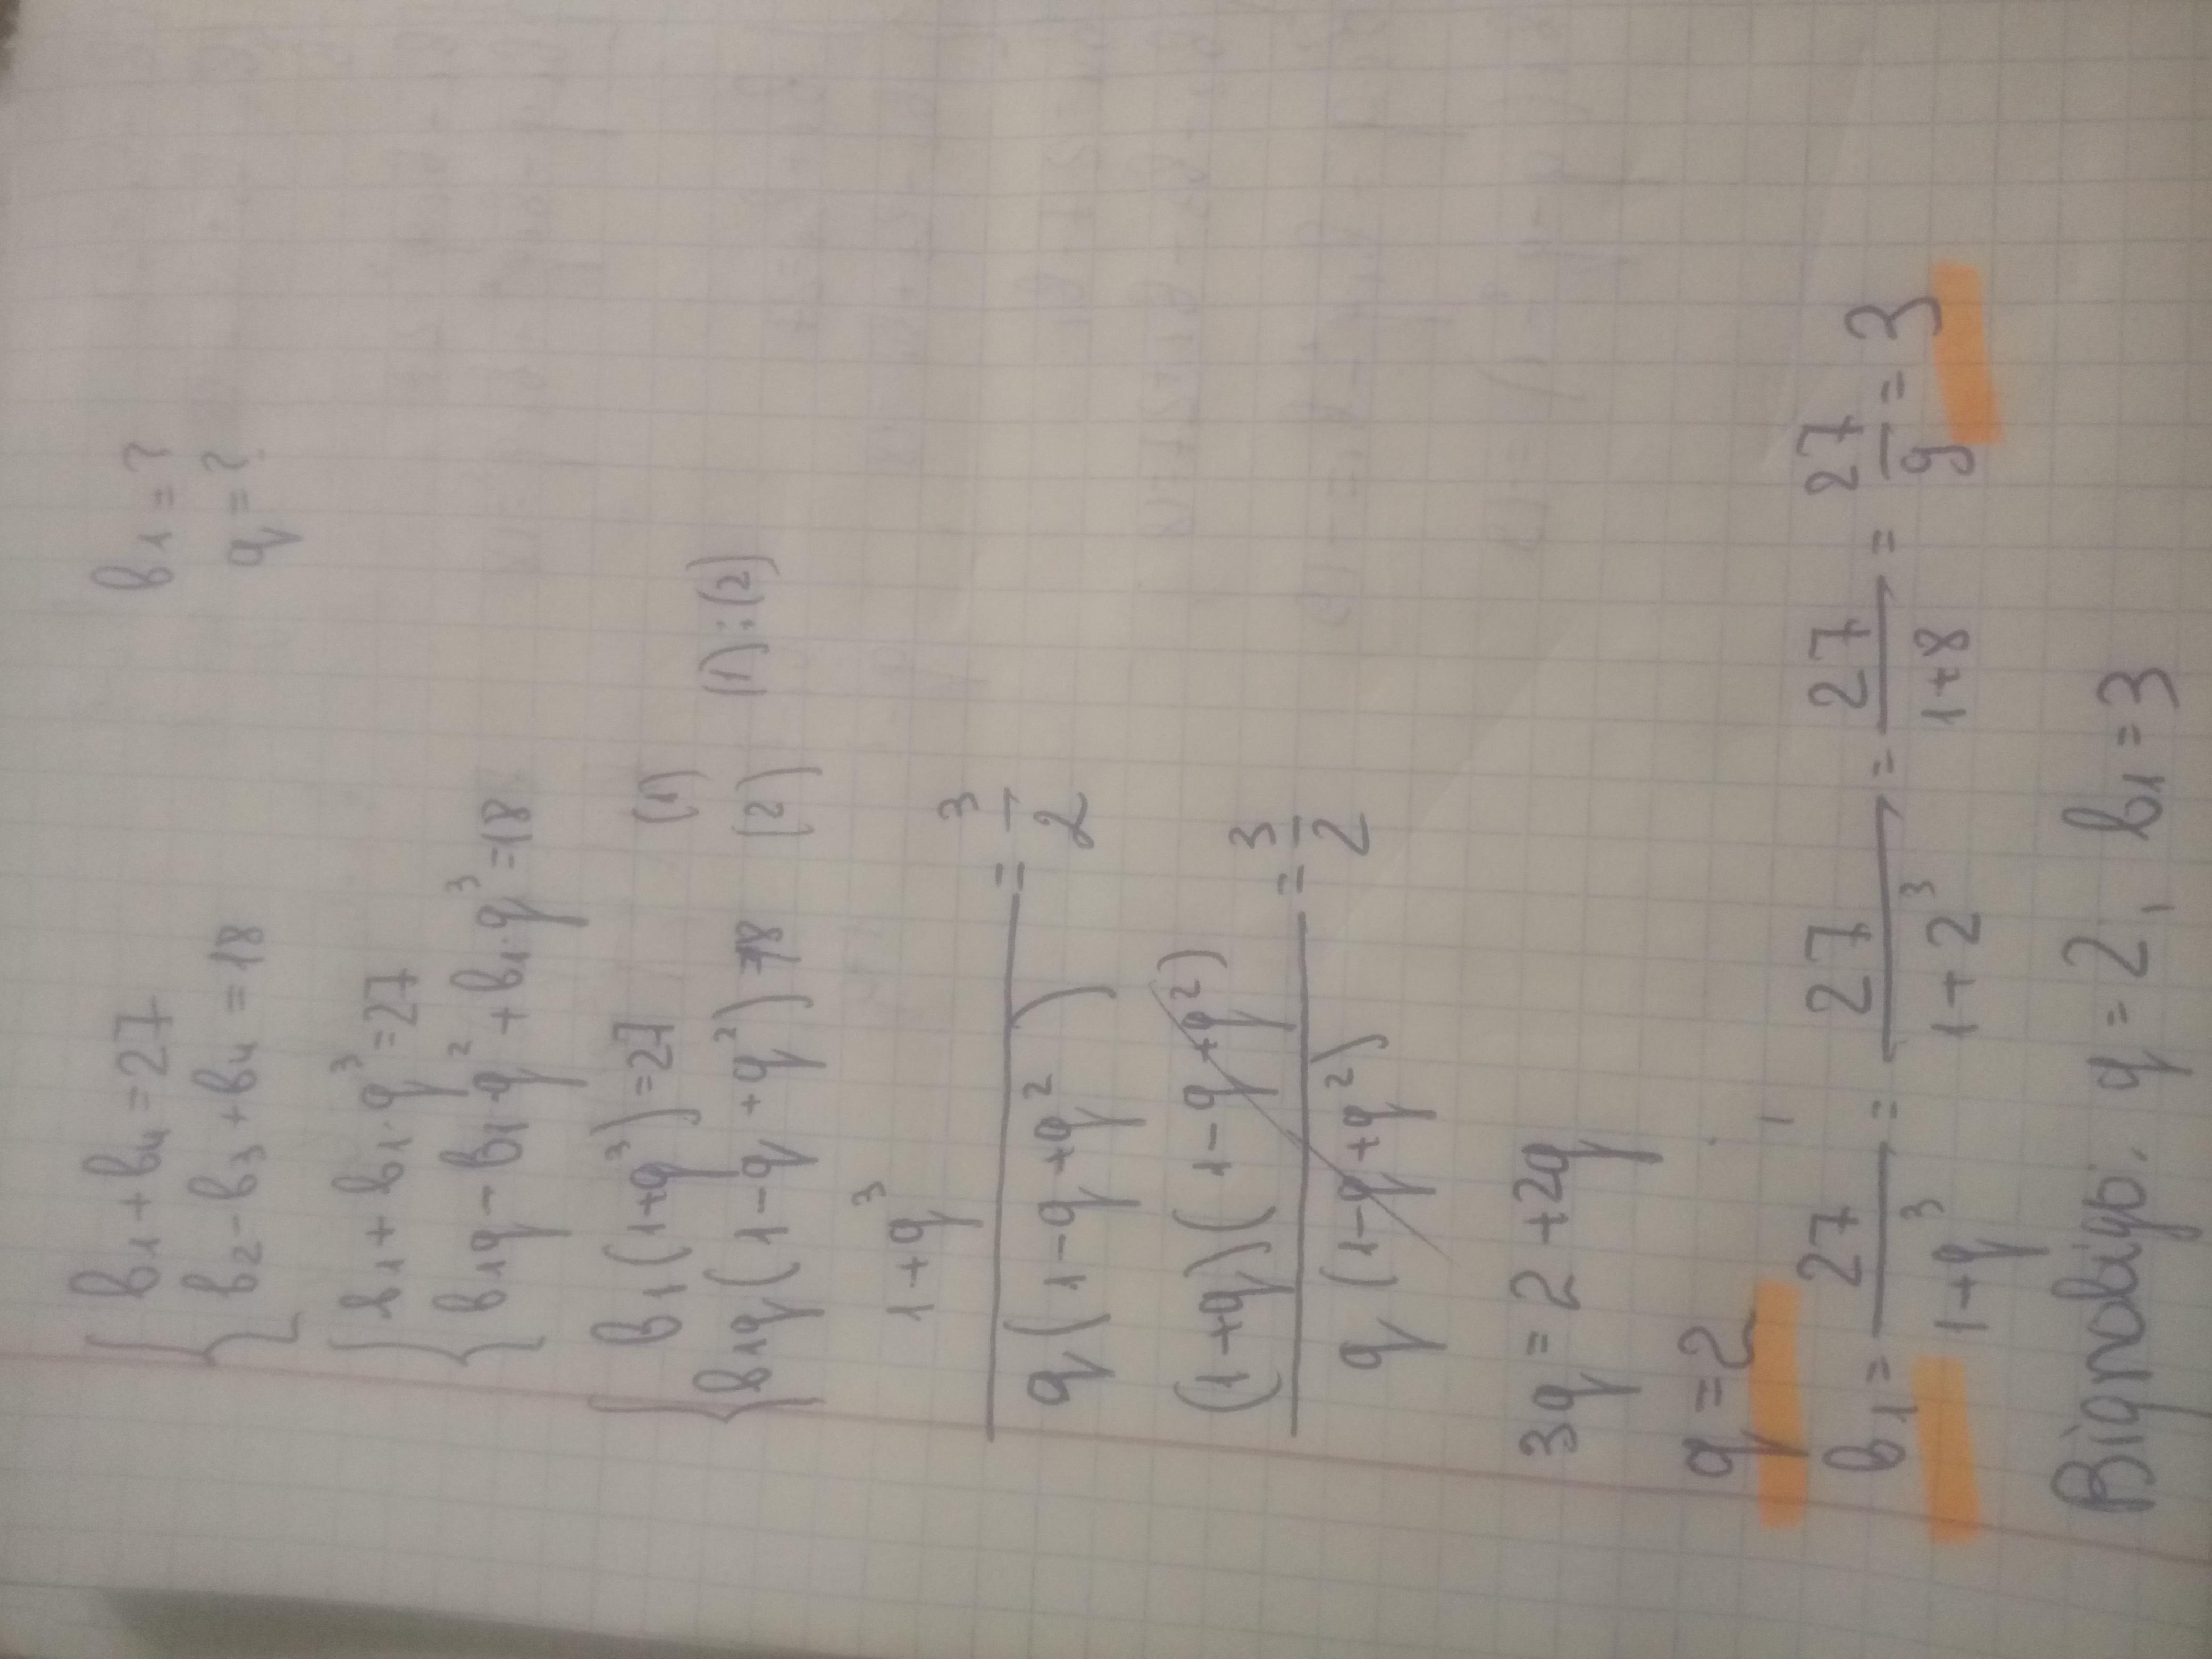 { b₁ + b₄ = 27 b₁ = ?
{ b₂ - b₃ + b₄ = 18 q = ?
{ b₁ + b₁ · q³ = 27
{ b₁q - b₁ · q² + b₁ · q³ = 18
{ b₁(1+q³) = 27 (1)
{ b₁q(1-q+q²) = 18 (2) (1):(2)
1+q³ / q(1-q+q²) = 3/2
(1+q)(1-q+q²) / q(1-q+q²) = 3/2
3q = 2 + 2q
q = 2
b₁ = 27/1+q³ = 27/1+2³ = 27/1+8 = 27/9 = 3
Відповідь: q = 2, b₁ = 3